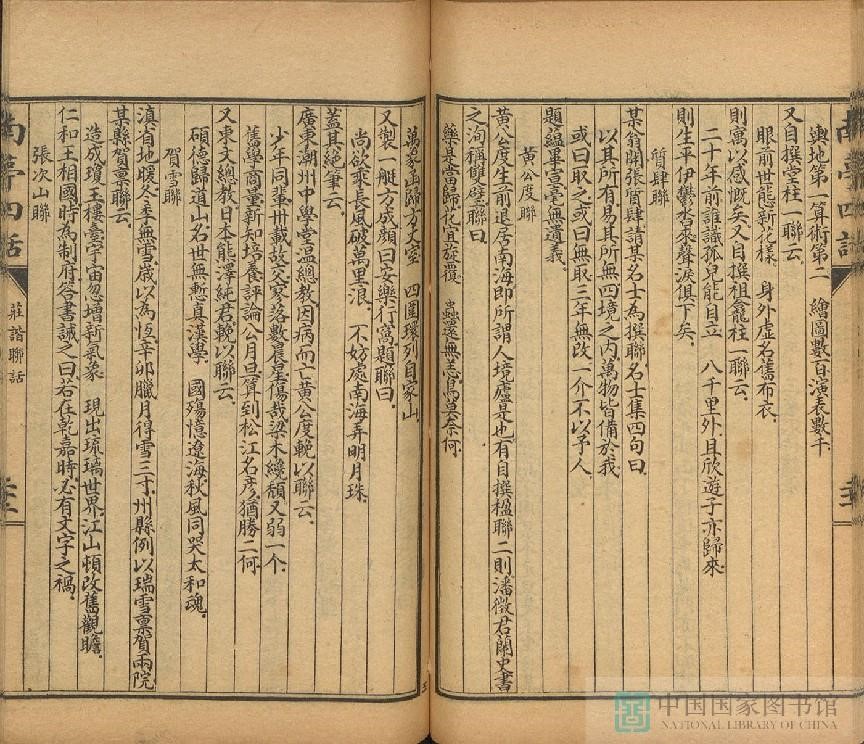 輿地第一算術第二　繪圖數百演表數千
又自撰堂柱一聯云
眼前世態新花樣　身外虛名舊布衣
則寓以感慨矣又自撰祖龕柱一聯云
二十年前誰識孤兒能自立　八千里外且欣遊子亦歸來
則生平伊鬱害來聲淚俱下矣
質肆聯
某翁開張質肆請某名士為撰聯名士集四句曰
以其所有易其所無四境之內萬物皆備於我
或曰取之或曰無取三年無改一介不以予人
題蘊畢宣毫無遺義
黃公度聯
黃公度生前退居南海即所謂人境廬是也有自撰楹聯二則潘徵君蘭史書
之洵稱雙壁聯曰
藥是當歸花宜旋覆　蟲還無恙鳥莫奈何
萬象函歸方丈室　四圍環列自家山
又製一艇方成顏曰安樂行窩題聯曰
尚欲乘長風破萬里浪　不妨處南海弄明月珠
蓋其絕筆云
廣東潮州中學堂溫總教因病而亡黃公度輓以聯云
少年同輩卅載故交寥落數晨星傷哉梁木繞頹又弱一个
舊學商量新知培養評論公月旦算到松江名彥猶勝二何
又東文總教日本能澤純君輓以聯云
碩德歸道山名世無慙真漢學　國殤憶遼海秋風同哭太和魂
賀雪聯
滇省地暖冬季無雪歲以為恆辛卯臘月得雪三寸州縣例以瑞雪稟賀兩院
某縣賀稟聯云
造成瓊玉樓臺宇宙忽增新氣象　現出琉璃世界江山頓改舊觀瞻
仁和王相國時為制府答書誡之曰若在乾嘉時必有文字之禍
張次山聯
南亭四話
莊諧聯話
中国国家图书馆
NATIONAL LIBRARY OF CHINA